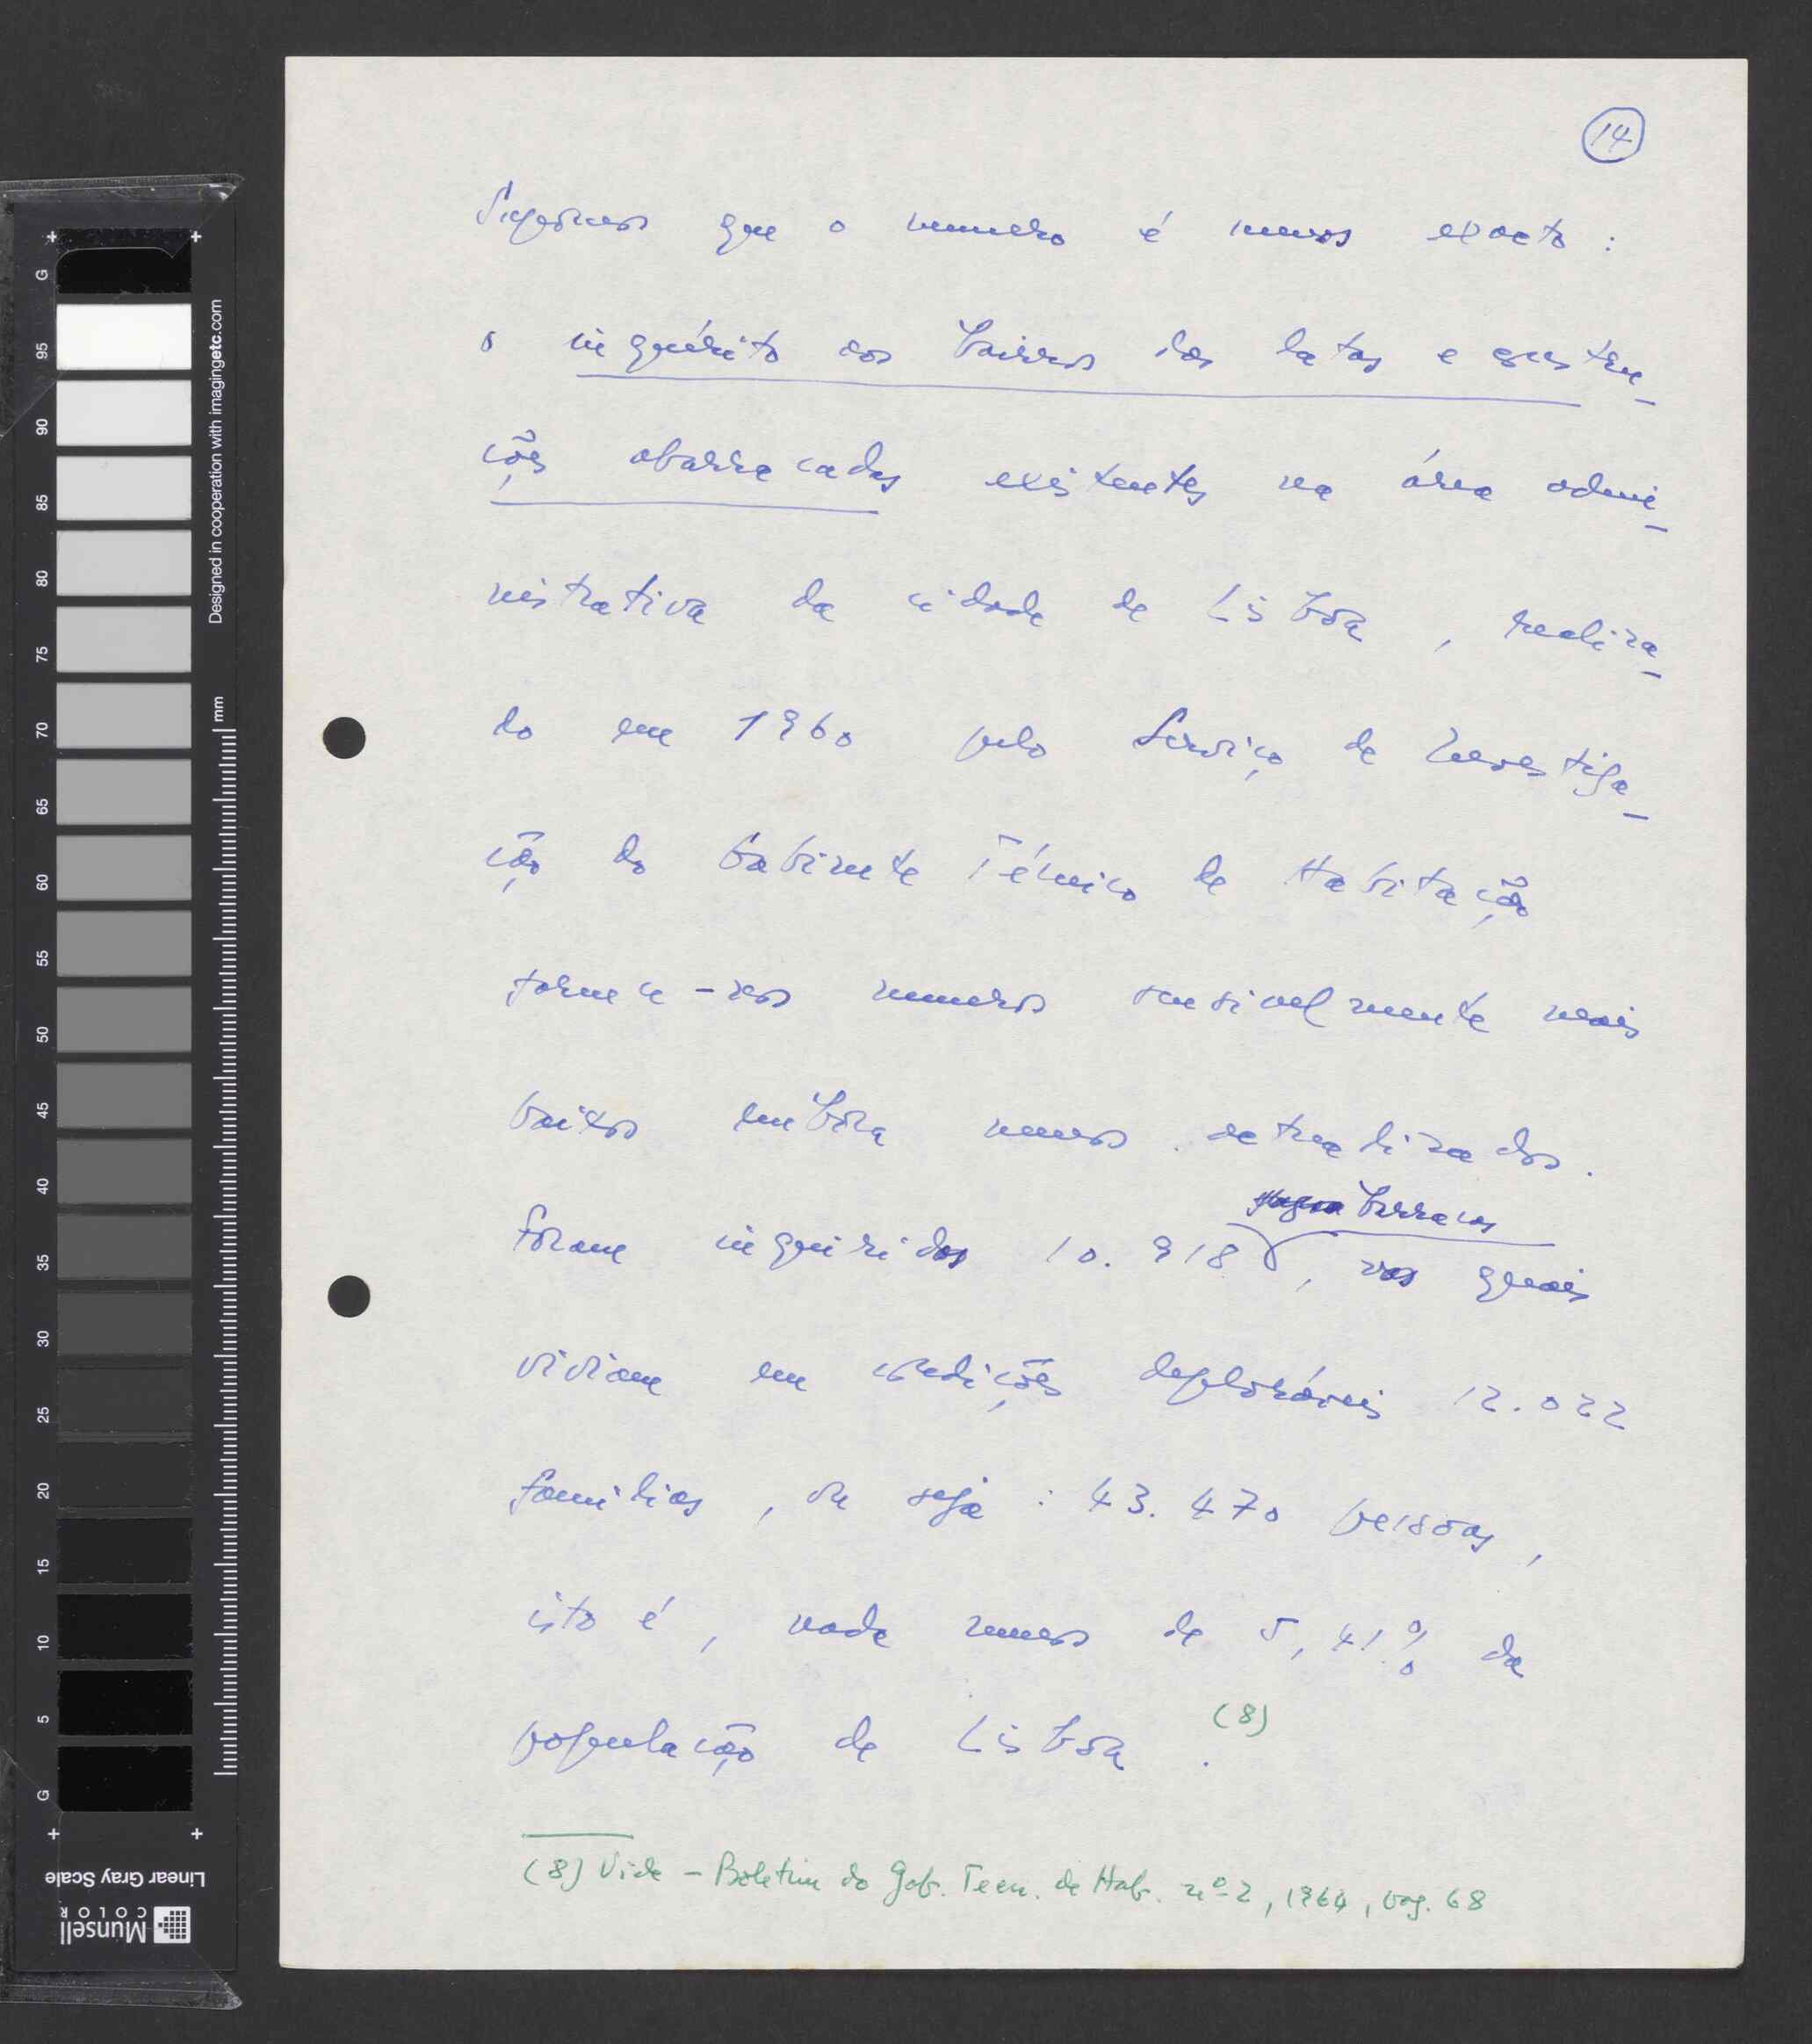 14
Supomos que o numero é menos exacto :
o inquérito aos bairros das latas e constru-
ções abarracadas existentes na área admi-
nistrativa da cidade de Lisboa , realiza-
do em 1960 pelo Serviço de Investiga-
ção do Gabinete Técnico de Habitação
fornece-nos numeros sensivelmente mais
baixos embora menos actualizados.
barracas
Foram inquiridas 10.918 , nas quais
viviam em condições deploráveis 12.022
familias , ou seja : 43.470 pessoas ,
isto é , nada menos de 5,41% da
população de Lisboa . (8)
(8) Vide - Boletim do Gab. Tecn. de Hab. nº 2, 1964, pag. 68
G
95
90
85
80
75
70
65
60
55
50
45
40
35
30
25
20
15
10
5
G
Designed in cooperation with imagingetc.com
mm
Linear Gray Scale
Munsell
COLOR